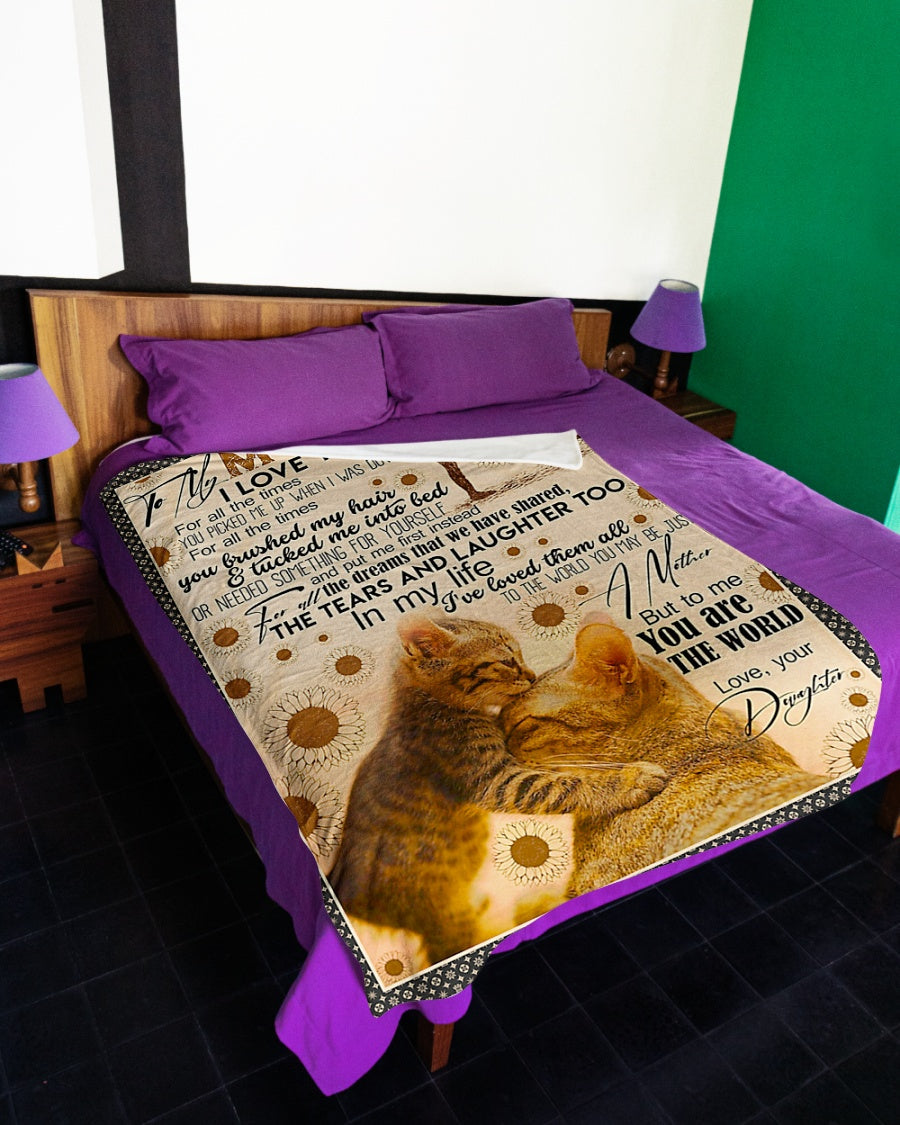 To My M
I LOVE
For all the times
YOU PICKED ME UP WHEN I WAS
For all the times
you brushed my hair
& tucked me into bed
OR NEEDED SOMETHING FOR YOURSELF
and put me first instead
For all the dreams that we have shared,
THE TEARS AND LAUGHTER TOO
In my life
I've loved them all
TO THE WORLD YOU MAY BE JUS
A Mother
But to me
You are
THE WORLD
Love, your
Daughter